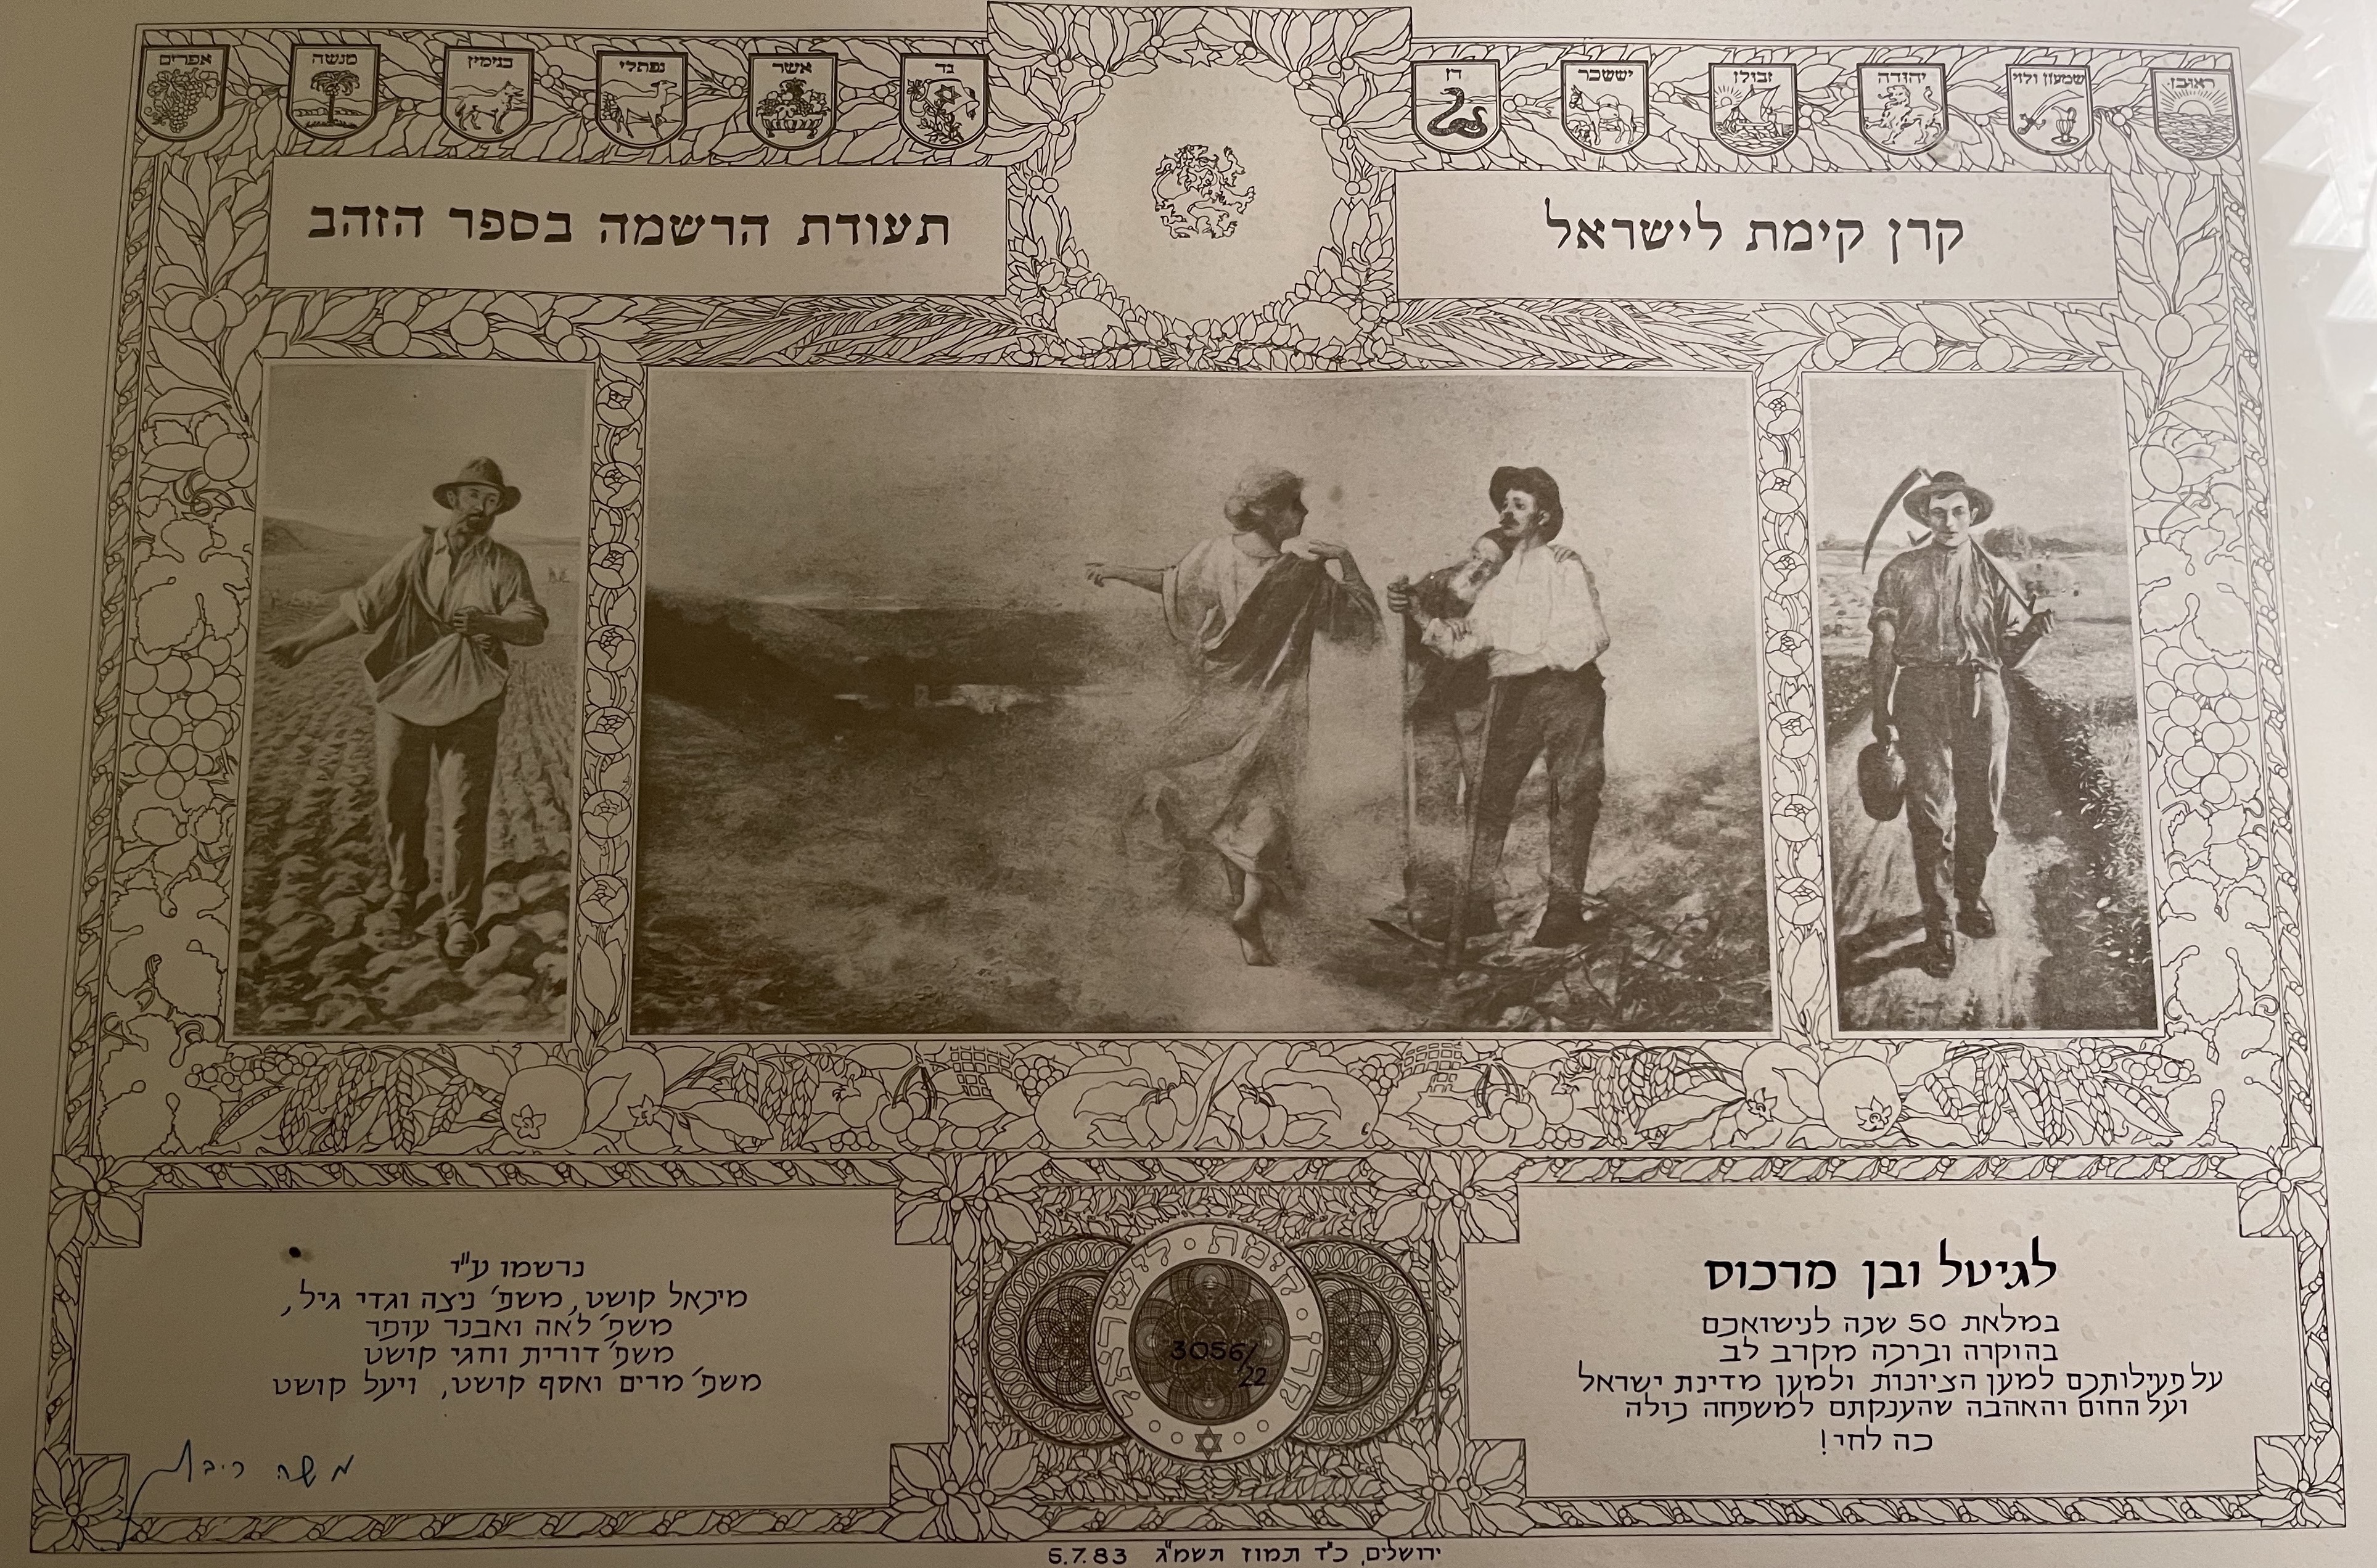 ראובן
שמעון ולוי
יהודה
זבולן
יששכר
דן
גד
אשר
נפתלי
בנימין
מנשה
אפרים
קרן קימת לישראל
תעודת הרשמה בספר הזהב
לגיטל ובן מרכוס
במלאת 50 שנה לנישואכם
בהוקרה וברכה מקרב לב
על פעילותכם למען הציונות ולמען מדינת ישראל
ועל החום והאהבה שהענקתם למשפחה כולה
כה לחי!
קרן · קימת · לישראל
3056/
22
נרשמו ע"י
מיכאל קושט, משפ' ניצה וגדי גיל,
משפ' לאה ואבנר עופר
משפ' דורית וחגי קושט
משפ' מרים ואסף קושט, ויעל קושט
משה ריבלין
ירושלים, כ"ד תמוז תשמ"ג 5.7.83